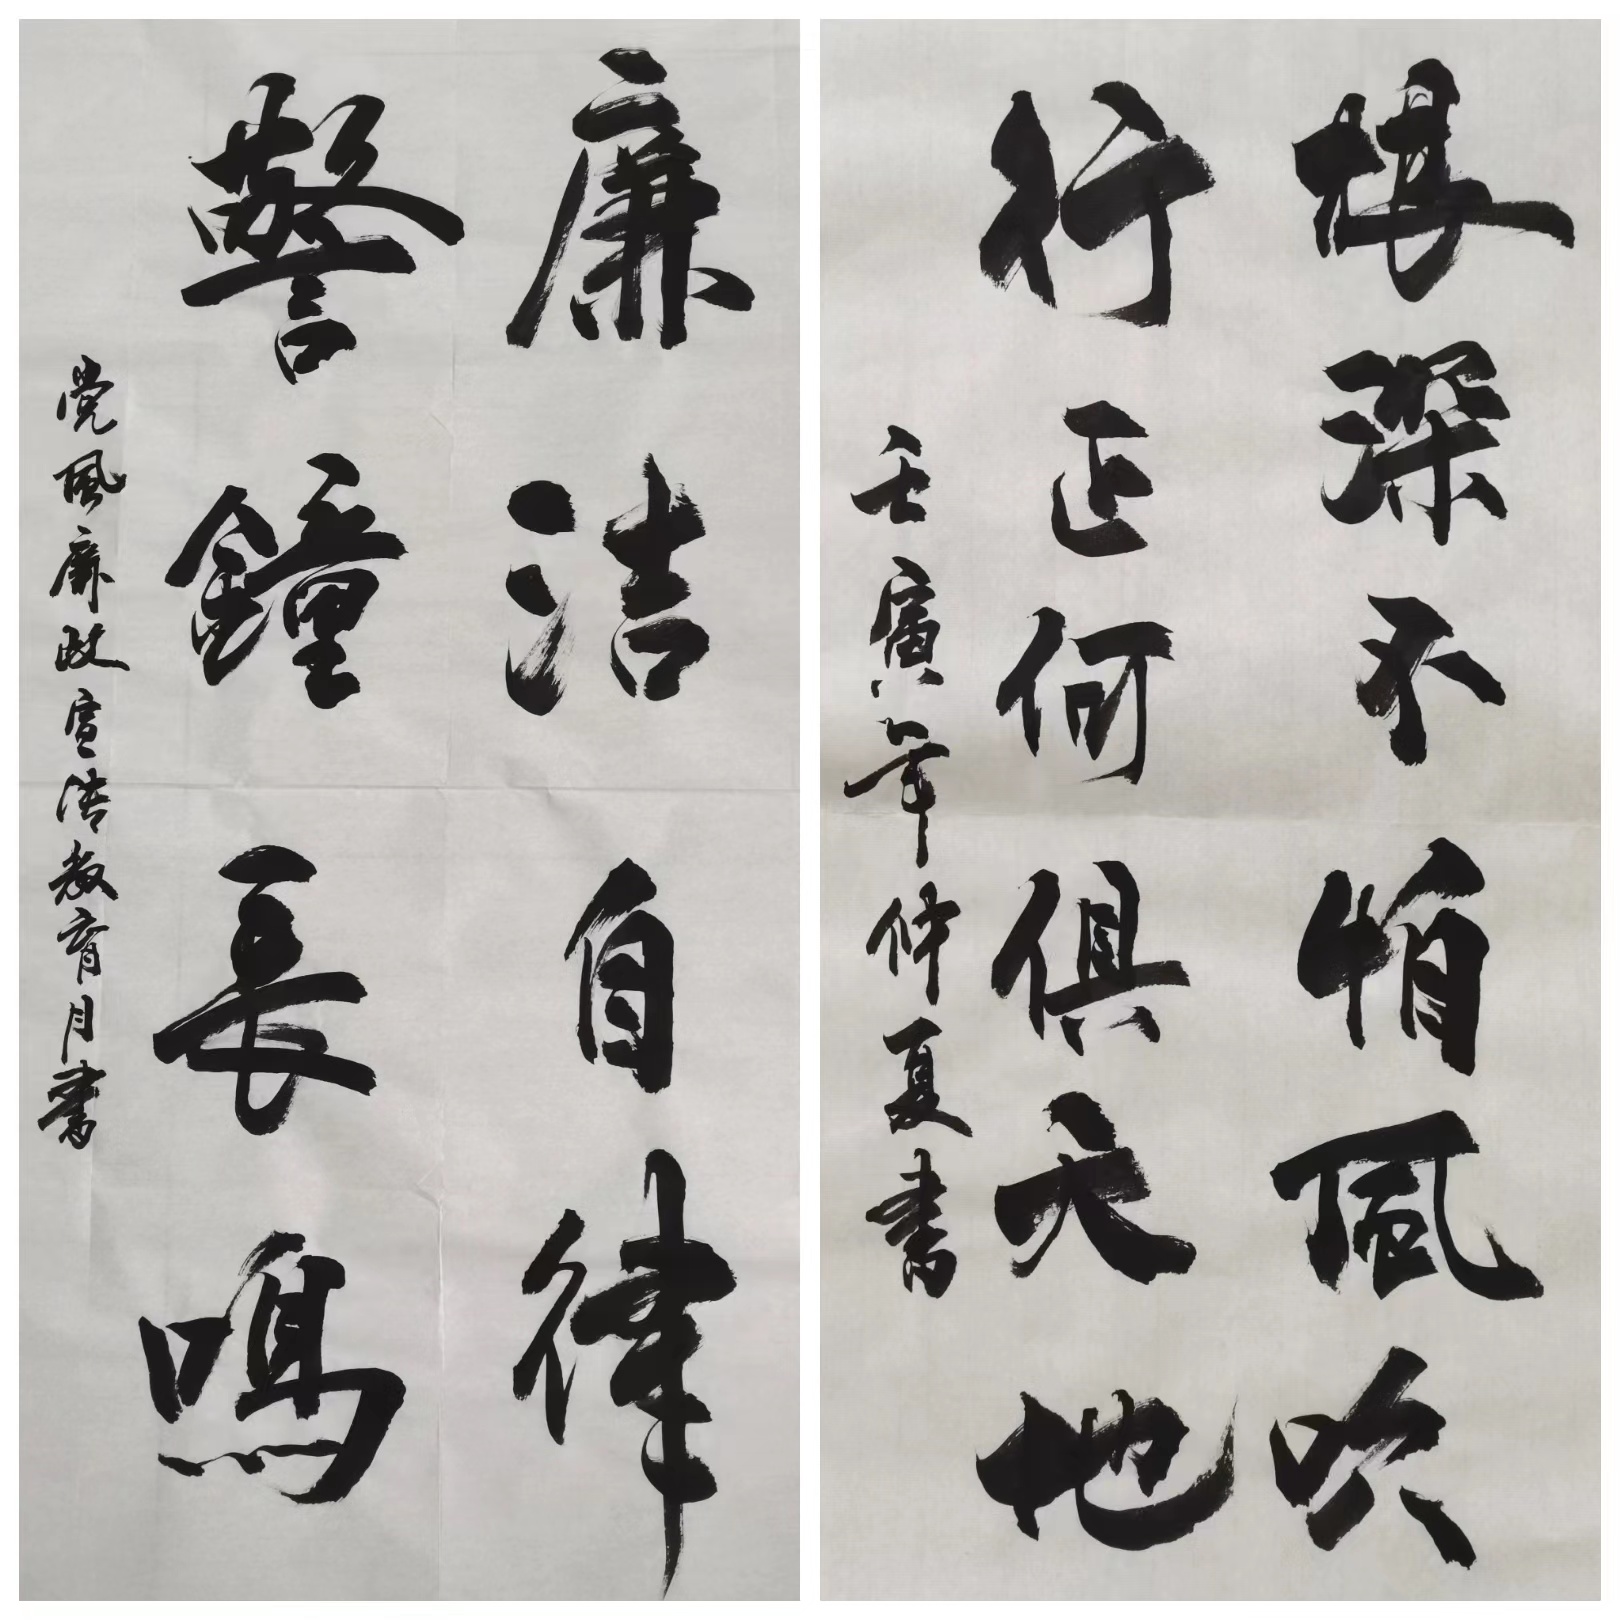 廉洁自律
警鐘長鳴
党風廉政宣传教育月書
根深不怕風吹
行正何俱天地
壬寅年仲夏書